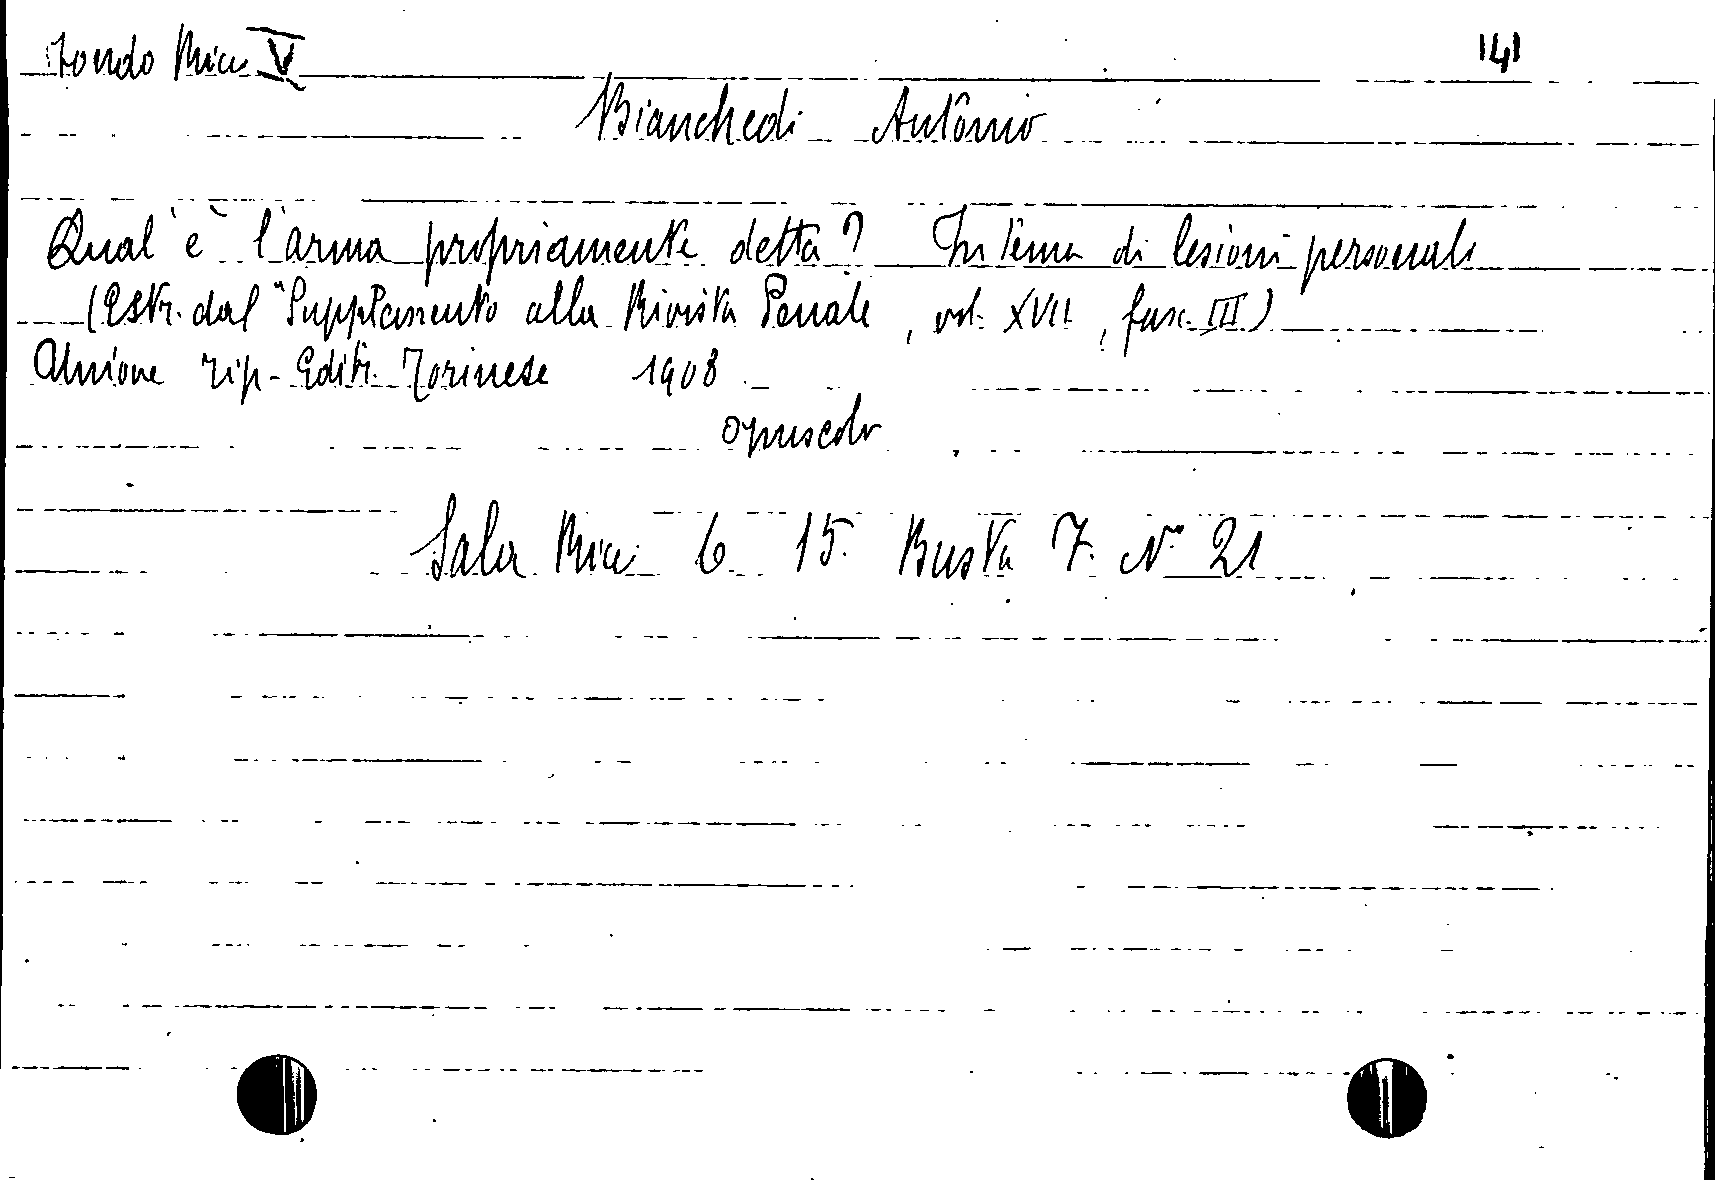 Fondo Ricci V 141
Bianchedi Antonio
Qual'è l'arma propriamente detta? In tema di lesioni personali
(Estr. dal "Supplemento alla Rivista Penale, vol. XVII, fasc. III)
Unione Tip-Editr. Torinese 1908
opuscolo
Sala Ricci 6 15. Busta 7. N° 21